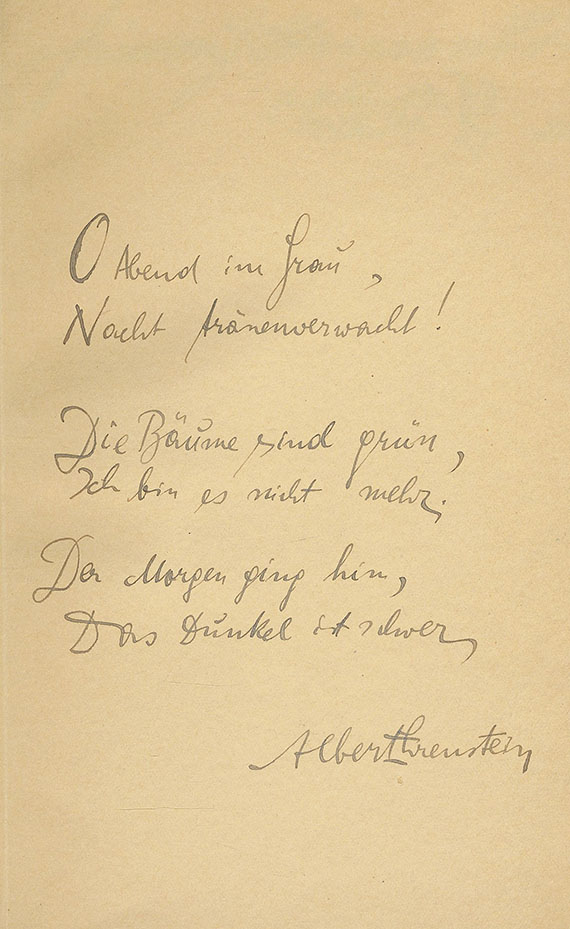 O Abend im Grau,
Nacht tränenverwacht!
Die Bäume sind grün,
Ich bin es nicht mehr.
Der Morgen ging hin,
Das Dunkel ist schwer,
Albert Ehrenstein